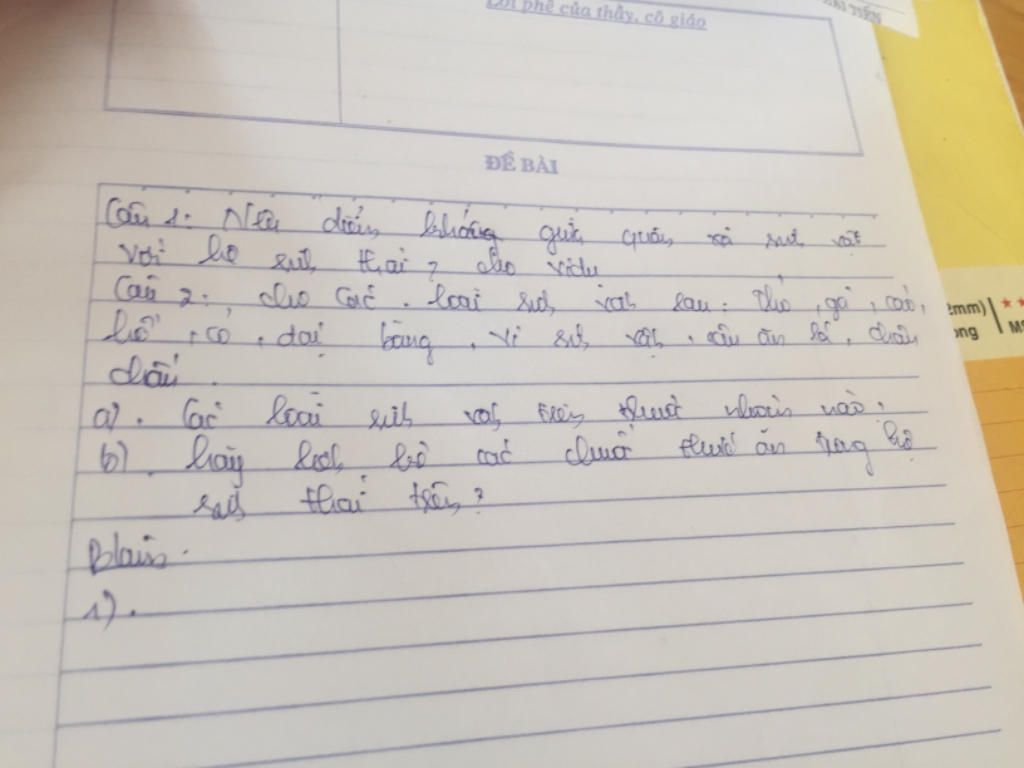 Lời phê của thầy, cô giáo
ĐỀ BÀI
Câu 1: Nêu điểm khác giữa quần xã sinh vật
với hệ sinh thái? cho vidu
Câu 2: cho các loài sinh vật sau: thỏ, gà, cáo,
hổ, cỏ, đại bàng, vi sinh vật, sâu ăn lá, châu
chấu.
a). Các loài sinh vật trên thuộc nhóm nào.
b) hãy các chuỗi thức ăn trong hệ
sinh thái trên?
Blàm.
1).
mm)
ong
MS